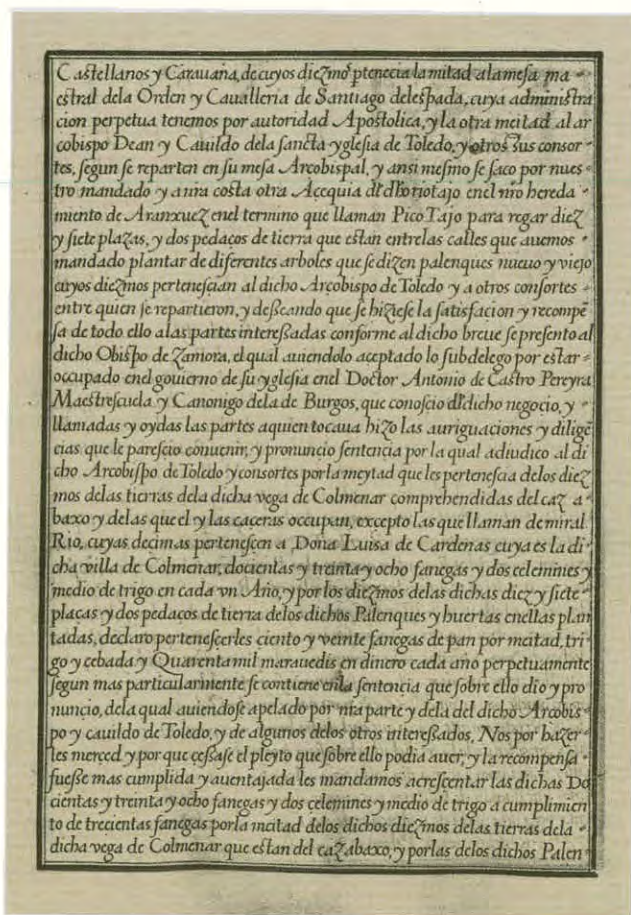 Castellanos y Carauaña, de cuyos diezmos ptenecia la mitad ala mesa ma
estral dela Orden y Caualleria de Santiago delespada, cuya administra
cion perpetua tenemos por autoridad Apostolica, y la otra meitad al ar
cobispo Dean y Cauildo dela sancta yglesia de Toledo, y otros sus consor
tes, segun se reparten en su mesa Arcobispal, y ansi mesmo se saco por nues
tro mandado y a nra costa otra Açequia dl dho rio tajo enel nro hereda
miento de Aranxuez enel termino que llaman Pico Tajo para regar diez
y siete plazas, y dos pedaços de tierra que estan entrelas calles que auemos
mandado plantar de diferentes arboles que se dizen palenques nueuo y viejo
cuyos diezmos pertenescian al dicho Arcobispo de Toledo y a otros consortes
entre quien se repartieron, y desseando que se hiziese la satisfacion y recompē
sa de todo ello alas partes interessadas conforme al dicho breue se presento al
dicho Obispo de Zamora, el qual auiendolo aceptado lo subdelego por estar
occupado enel gouierno de su yglesia enel Doctor Antonio de Castro Pereyra
Maestrescuela y Canonigo dela de Burgos, que conoscio dl dicho negocio, y
llamadas y oydas las partes aquien tocaua hizo las aueriguaciones y diligē
cias que le parescio conuenir, y pronuncio sentencia por la qual adiudico al di
cho Arcobispo de Toledo y consortes por la meytad que les pertenescia delos diez
mos delas tierras dela dicha vega de Colmenar comprehendidas del caz a
baxo y delas que el y las caceras occupan, excepto las que llaman de miral
Rio, cuyas decimas pertenescen a Doña Luisa de Cardenas cuya es la di
cha villa de Colmenar, docientas y treinta y ocho fanegas y dos celemines y
medio de trigo en cada vn Año, y por los diezmos delas dichas diez y siete
placas y dos pedaços de tierra delos dichos Palenques y huertas enellas plan
tadas, declaro pertenescerles ciento y veinte fanegas de pan por meitad, tri
go y cebada y Quarenta mil marauedis en dinero cada año perpetuamente
segun mas particularmente se contiene enla sentencia que sobre ello dio y pro
nuncio, dela qual auiendose apelado por nra parte y dela del dicho Arcobis
po y cauildo de Toledo, y de algunos delos otros interessados, Nos por hazer
les merced y por que cessase el pleyto que sobre ello podia auer, y la recompensa
fuesse mas cumplida y auentajada les mandamos acrescentar las dichas Do
cientas y treinta y ocho fanegas y dos celemines y medio de trigo a cumplimien
to de trecientas fanegas por la meitad delos dichos diezmos delas tierras dela
dicha vega de Colmenar que estan del caz abaxo, y por las delos dichos Palen